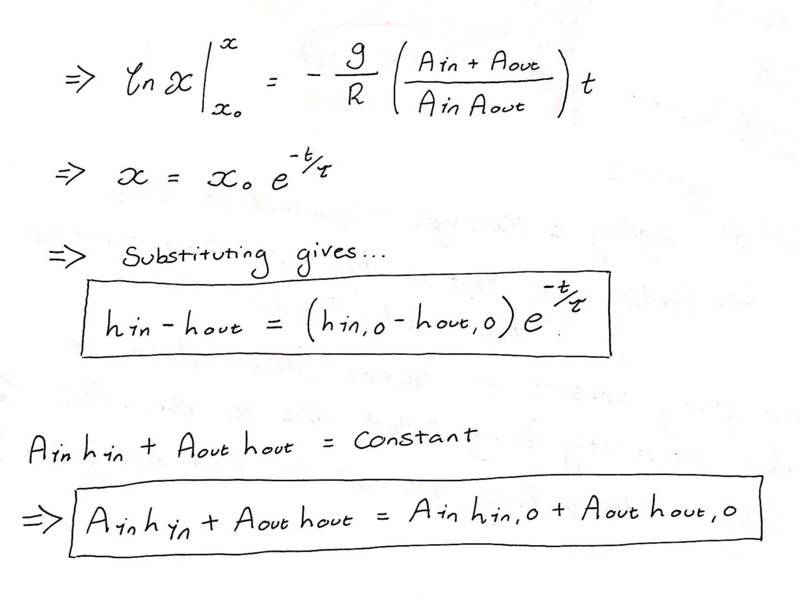 ⇒ ln x |ₓ₀ˣ = - g/R (Ain + Aout / Ain Aout) t
⇒ x = x₀ e^-t/τ
⇒ Substituting gives...
hin - hout = (hin,0 - hout,0) e^-t/τ
Ain hin + Aout hout = constant
⇒ Ain hin + Aout hout = Ain hin,0 + Aout hout,0